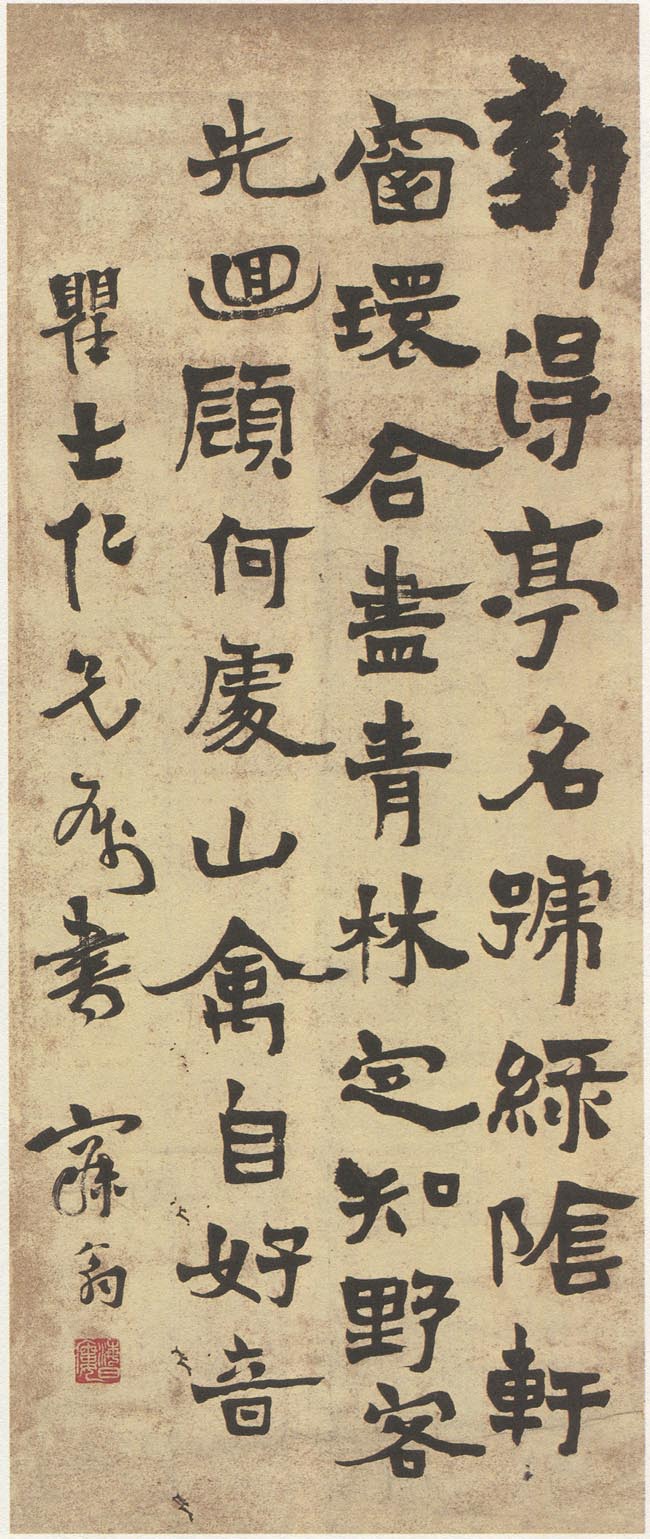 新得亭名號綠陰軒
窗環合盡青林定知野客
先迴顧何處山禽自好音
瞿士仁兄屬書
寐翁
海日